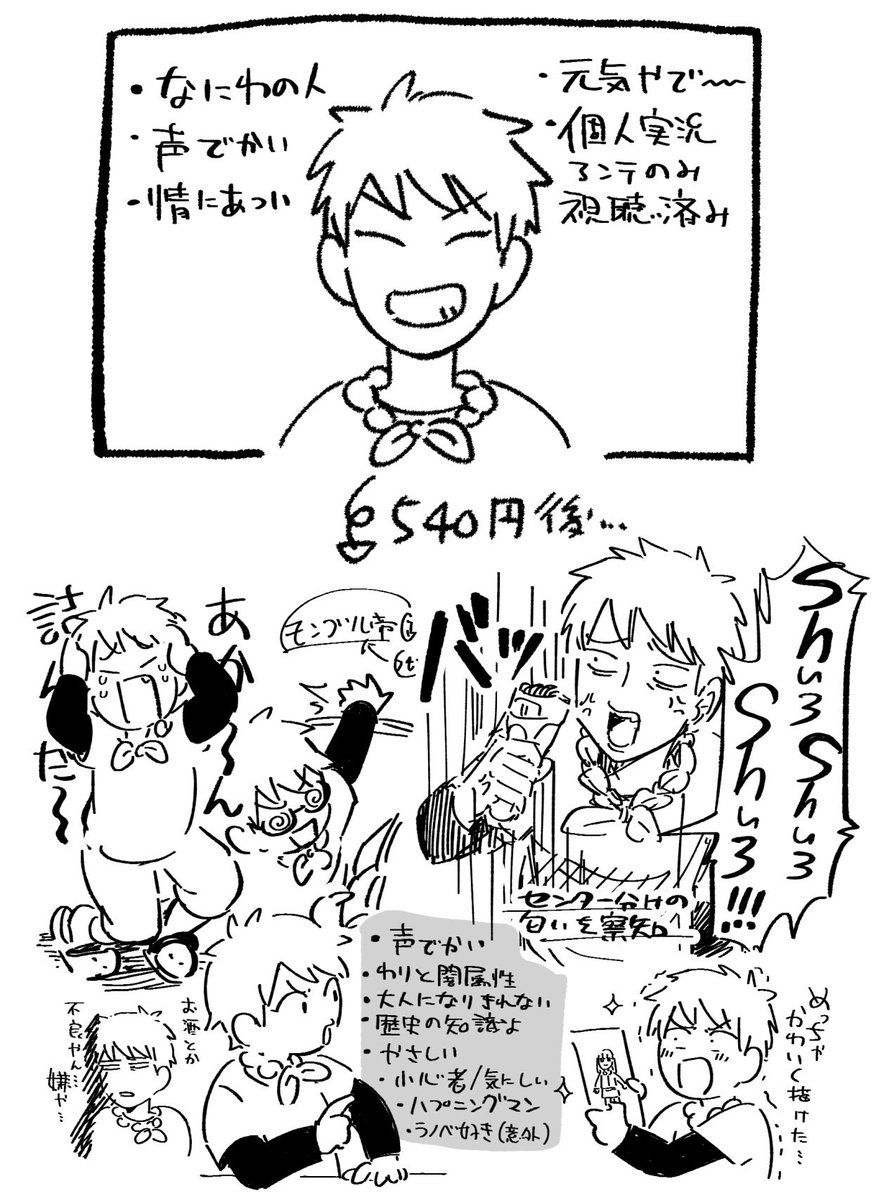 ・なにわの人
・声でかい
・情にあつい
・元気やで〜
・個人実況
アンテのみ
視聴済み
540円後...
あか〜〜ん
詰んだ〜
モンブリル帝
バッ
Shu3
Shu3
Shu3!!!
センター分けの
匂いを察知
・声でかい
・わりと闇属性
・大人になりきれない
・歴史の知識よ
・やさしい
・小心者/気にしい
・ハプニングマン
・ラノベ好き(意外)
お酒とか
不良やん…
嫌や…
めっちゃ
かわいく描けた…